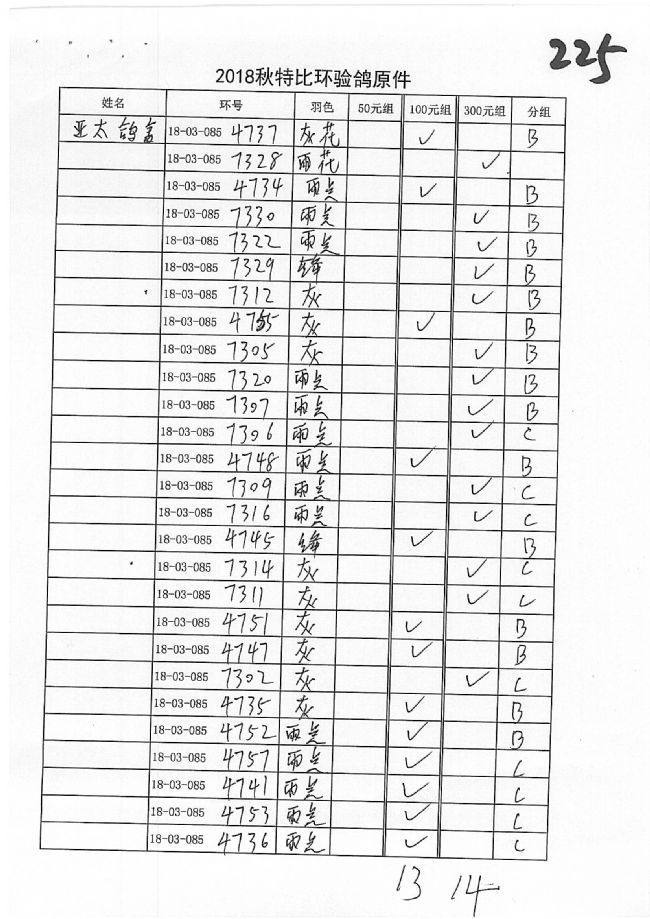 225
2018秋特比环验鸽原件
姓名 环号 羽色 50元组 100元组 300元组 分组
亚太鸽舍 18-03-085 4737 灰花 ✓ B
18-03-085 7328 雨花 ✓
18-03-085 4734 雨点 ✓ B
18-03-085 7330 雨点 ✓ B
18-03-085 7322 雨点 ✓ B
18-03-085 7329 绛 ✓ B
18-03-085 7312 灰 ✓ B
18-03-085 灰 ✓ B
18-03-085 7305 灰 ✓ B
18-03-085 7320 雨点 ✓ B
18-03-085 7307 雨点 ✓ B
18-03-085 7306 雨点 ✓ C
18-03-085 4748 雨点 ✓ B
18-03-085 7309 雨点 ✓ C
18-03-085 7316 雨点 ✓ C
18-03-085 4745 绛 ✓ B
18-03-085 7314 灰 ✓ C
18-03-085 7311 灰 ✓ C
18-03-085 4751 灰 ✓ B
18-03-085 4747 灰 ✓ B
18-03-085 7302 灰 ✓ C
18-03-085 4735 灰 ✓ B
18-03-085 4752 雨点 ✓ B
18-03-085 4757 雨点 ✓ C
18-03-085 4741 雨点 ✓ C
18-03-085 4753 雨点 ✓ C
18-03-085 4736 雨点 ✓ C
13 14